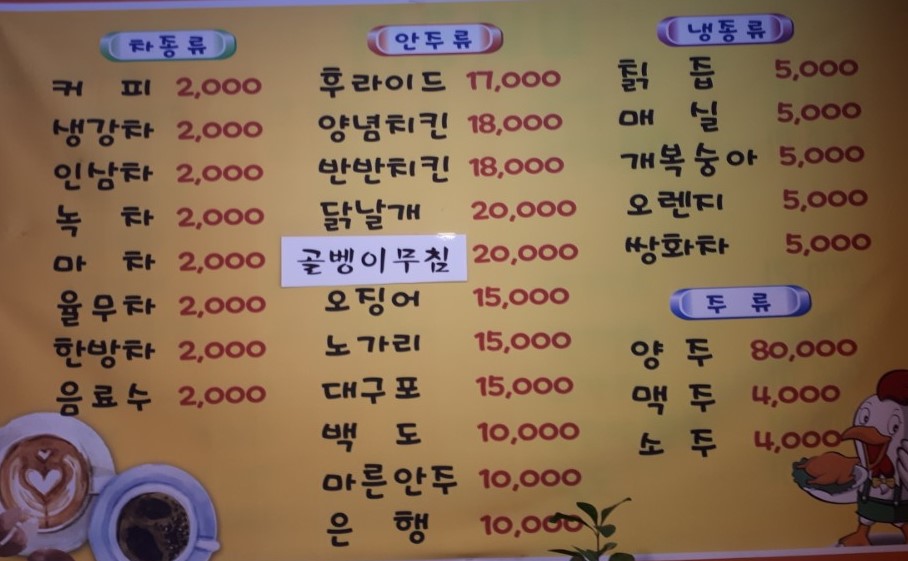 차종류
커 피 2,000
생강차 2,000
인삼차 2,000
녹 차 2,000
마 차 2,000
율무차 2,000
한방차 2,000
음료수 2,000
안주류
후라이드 17,000
양념치킨 18,000
반반치킨 18,000
닭날개 20,000
골벵이무침 20,000
오징어 15,000
노가리 15,000
대구포 15,000
백 도 10,000
마른안주 10,000
은 행 10,000
냉종류
칡 즙 5,000
매 실 5,000
개복숭아 5,000
오렌지 5,000
쌍화차 5,000
주 류
양 주 80,000
맥 주 4,000
소 주 4,000